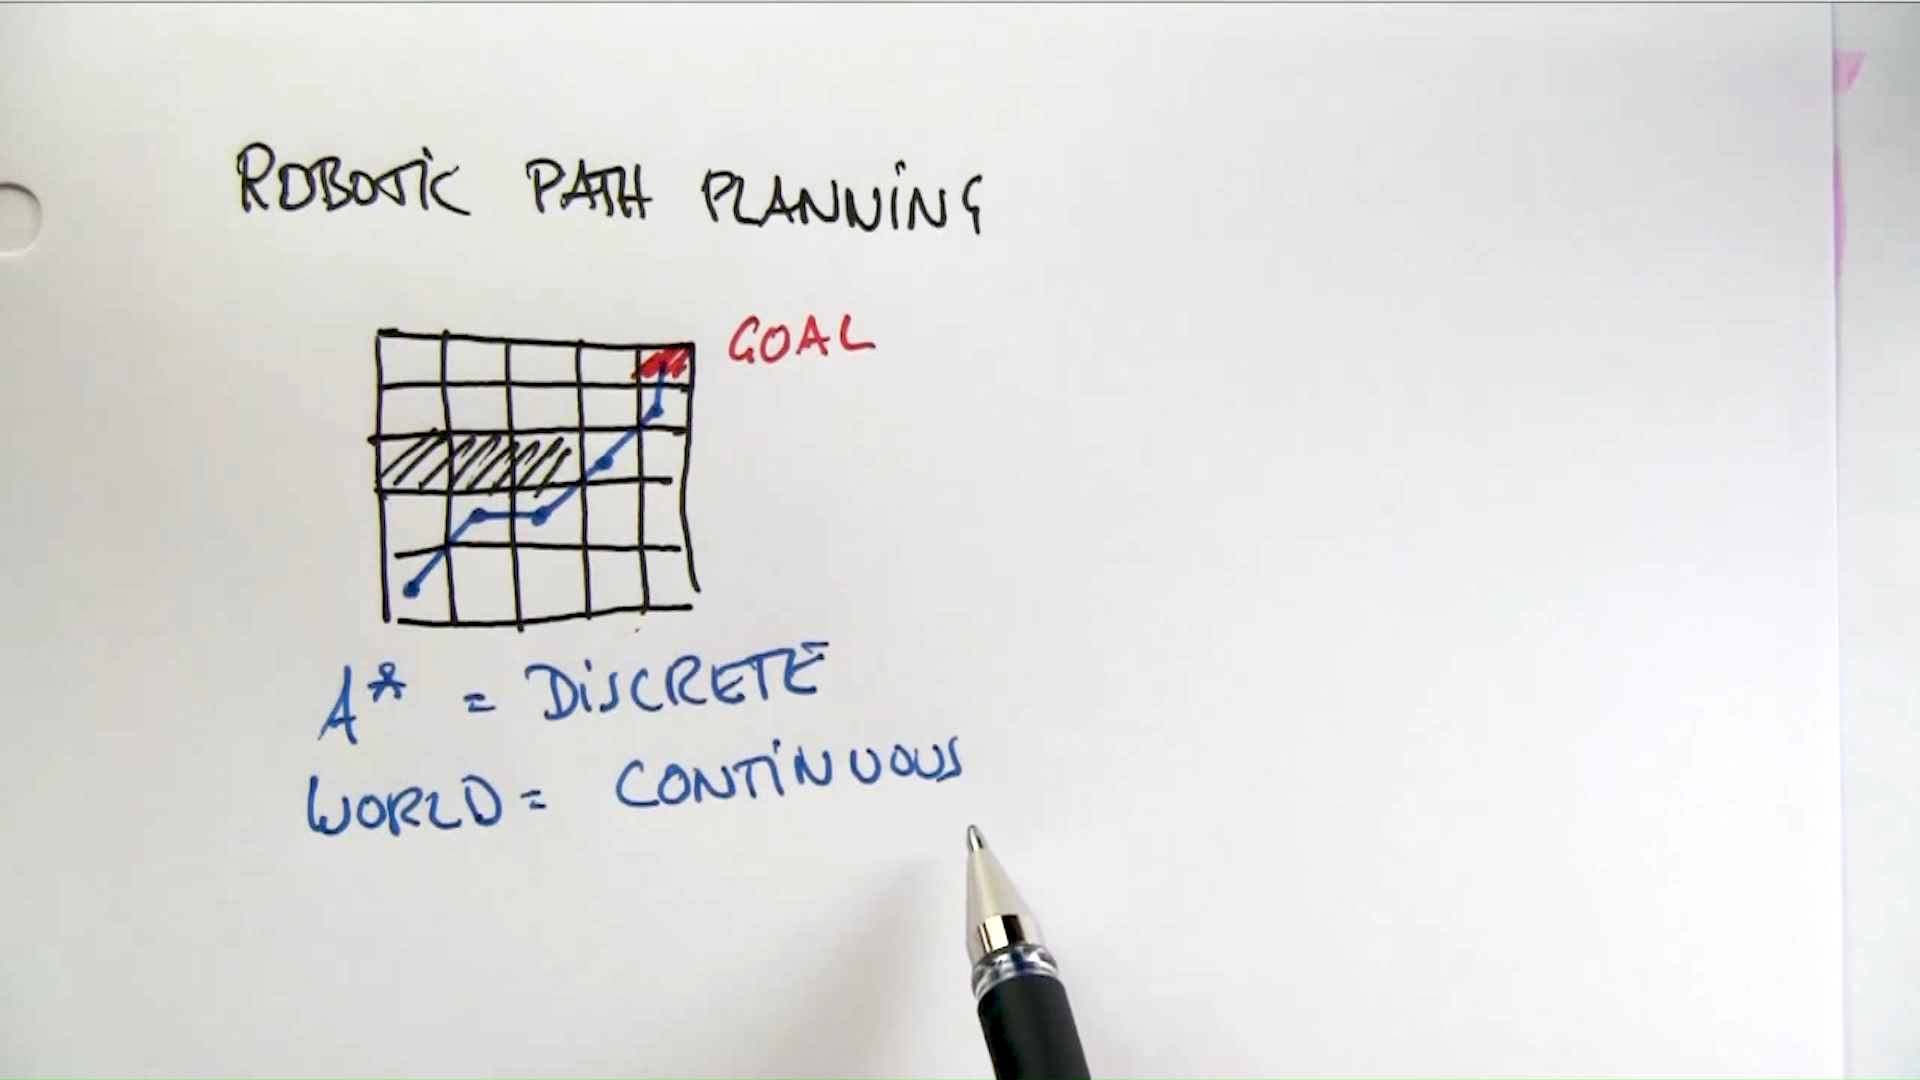 ROBOTiC PATH PLANNiNG
GOAL
A* = DiSCRETE
WORLD = CONTiNUOUS